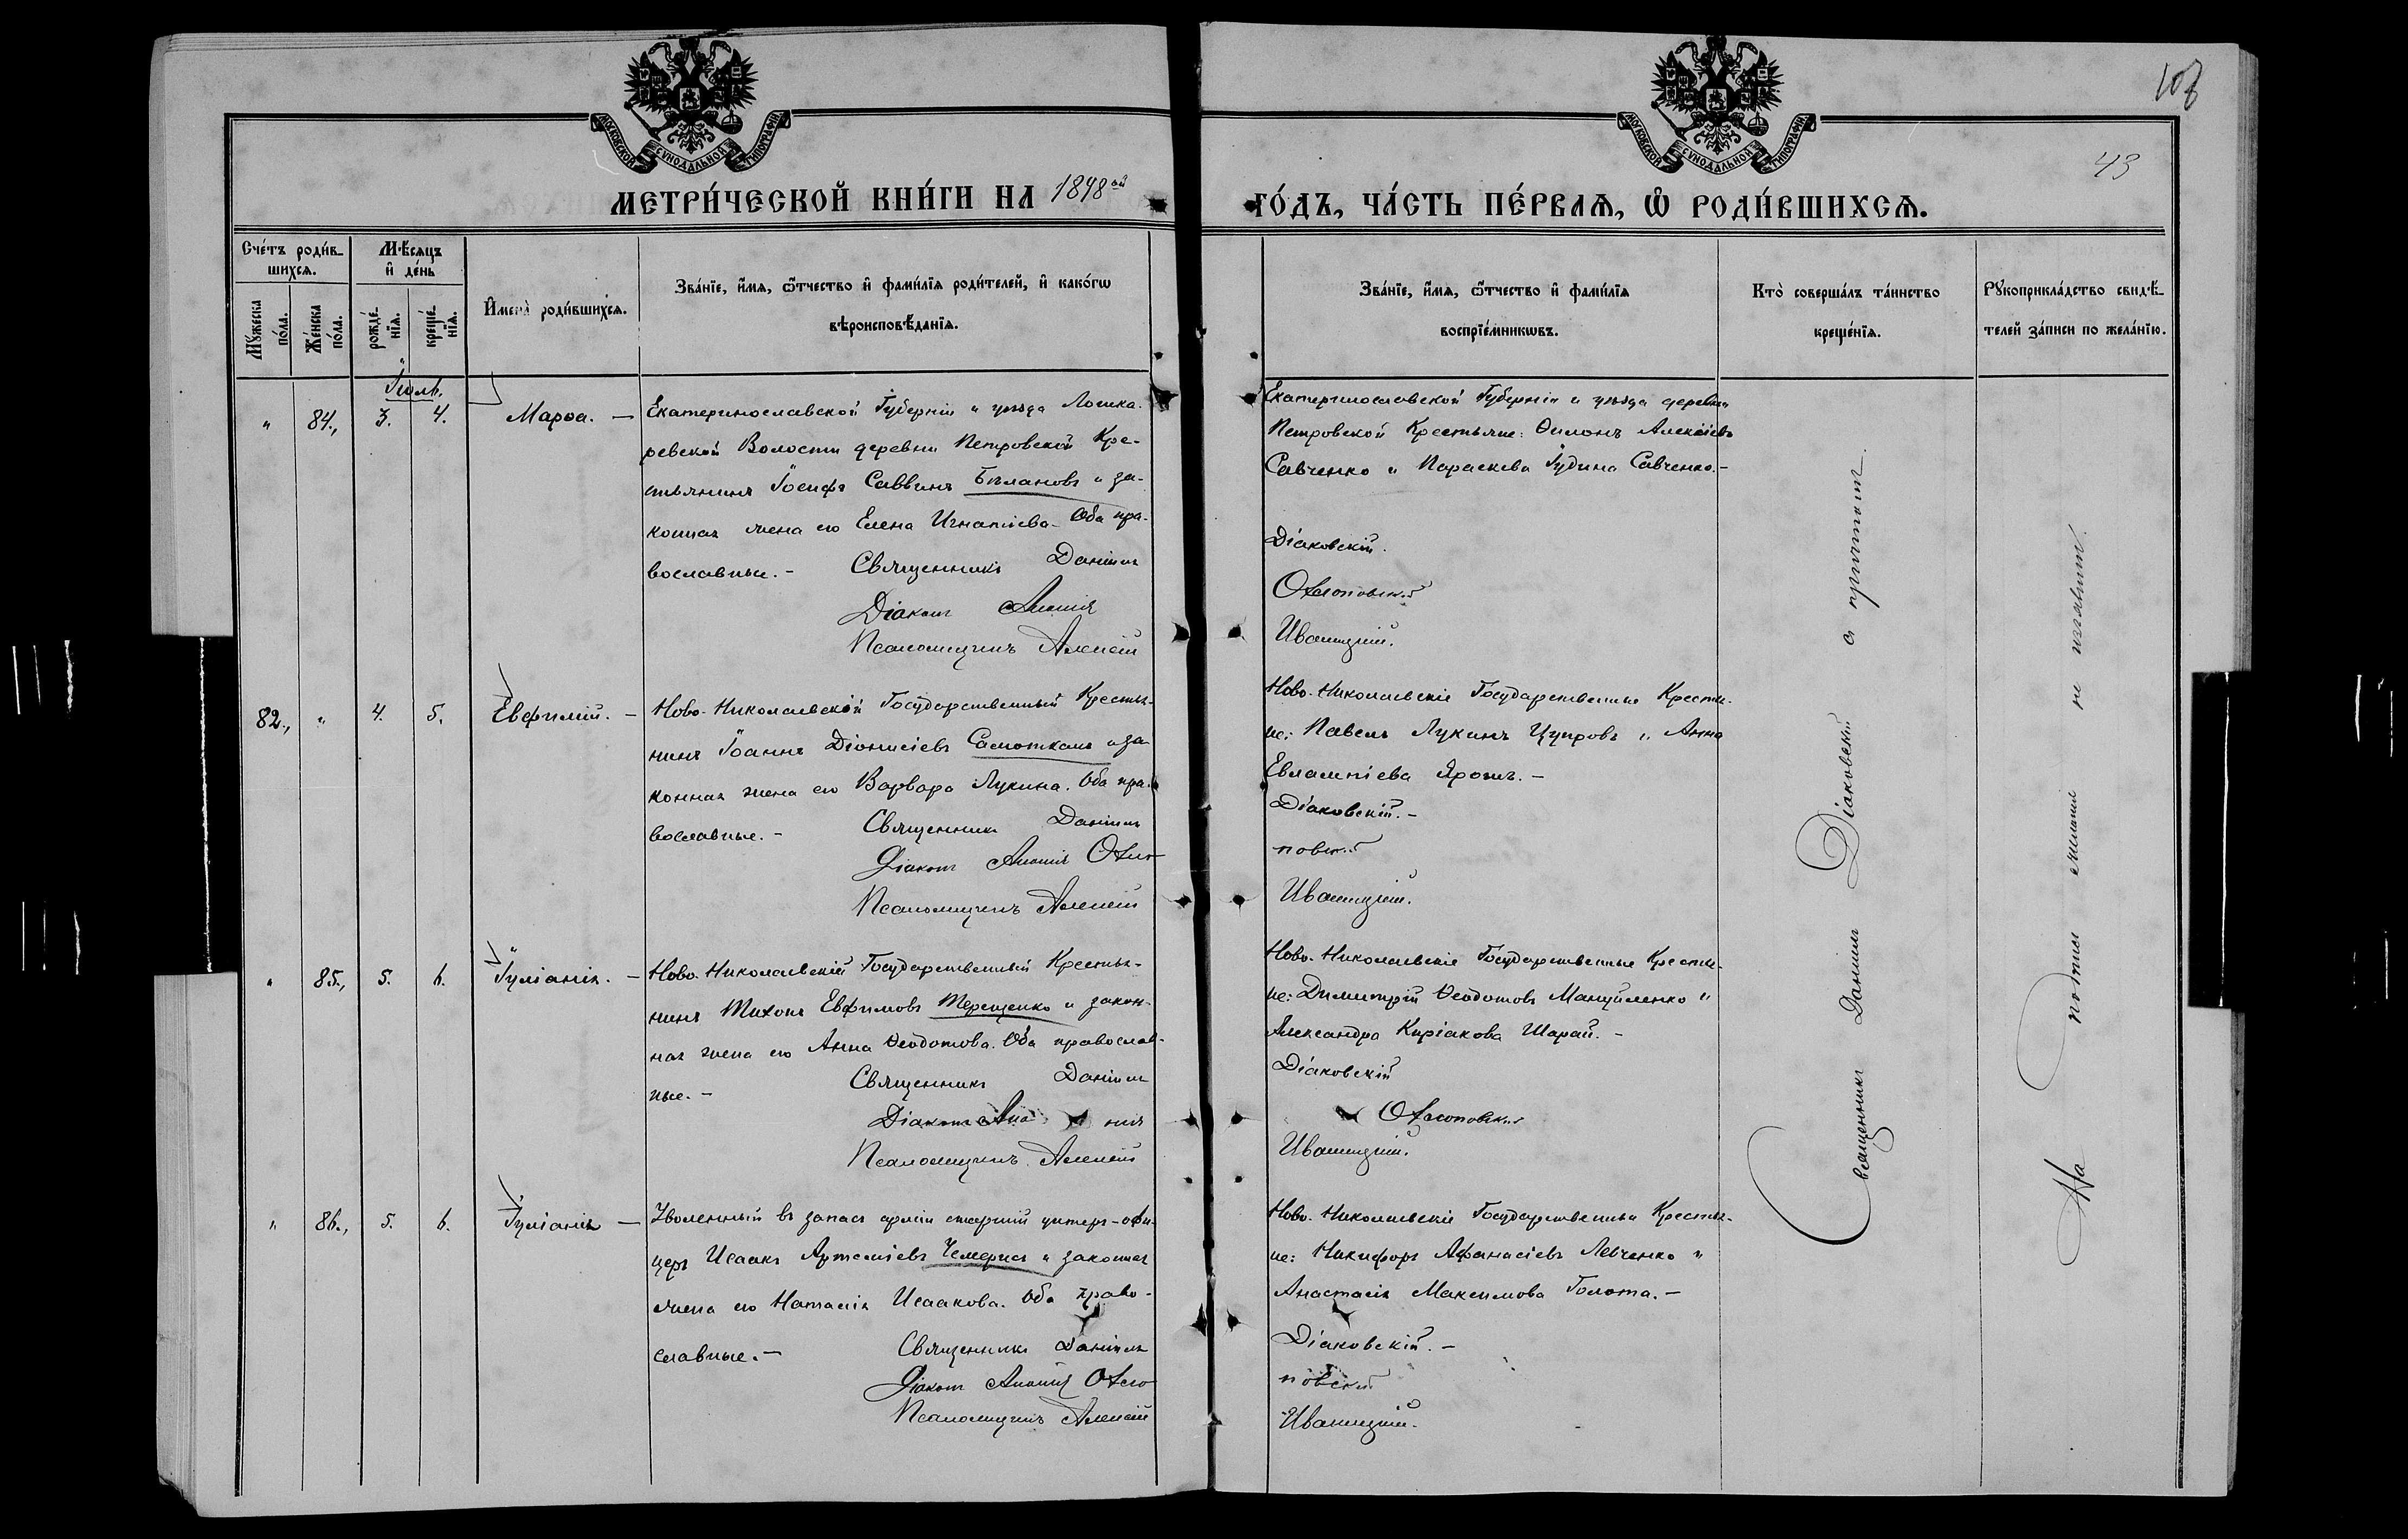 108
43
МОСКОВСКОЙ СѴНОДАЛЬНОЙ ТИПОГРАФІИ
МОСКОВСКОЙ СѴНОДАЛЬНОЙ ТИПОГРАФІИ
МЕТРИ́ЧЕСКОЙ КНИ́ГИ НА 1898ой
ГО́ДЪ, ЧА́СТЬ ПЕ́РВАѦ, Ѡ РОДИ́ВШИХСѦ.
Сче́тъ роди́в-
шихсѧ.
Мꙋ́жеска
по́ла.
Же́нска
по́ла.
Мѣ́сѧцъ
и҆ де́нь
рожде́-
нїѧ.
креще́-
нїѧ.
И҆мена̀ роди́вшихсѧ.
Зва́нїе, и҆́мѧ, ѻ҆́тчество и҆ фами́лїѧ роди́телей, и҆ како́гѡ
вѣроисповѣ́данїѧ.
Зва́нїе, и҆́мѧ, ѻ҆́тчество и҆ фами́лїѧ
воспрїе́мникѡвъ.
Кто̀ соверша́лъ та́инство
креще́нїѧ.
Рꙋкоприкла́дство свидѣ́-
телей за́писи по жела́нїю.
Іюль.
" 84., 3. 4. Марѳа. —
Екатеринославской Губерніи и уѣзда Лошка-
ревской Волости деревни Петровской Кре-
стьянинъ Іосифъ Саввинъ Бѣлановъ и за-
конная жена его Елена Игнатіева. Оба пра-
вославные. — Священникъ Даніилъ
Діаконъ Ананія
Псаломщикъ Алексій
Екатеринославской Губерніи и уѣзда деревни
Петровской Крестьяне: Филонъ Алексіевъ
Савченко и Параскева Іудина Савченко. —
Діаковскій.
Иваницкій.
82., " 4. 5. Евфимій. —
Ново-Николаевскій Государственный Крестья-
нинъ Іоаннъ Діонисіевъ Самоткалъ и за
конная жена его Варвара Лукина. Оба пра-
вославные. — Священникъ Даніилъ
Діаконъ Ананія
Псаломщикъ Алексій
Ново-Николаевскіе Государственные Крестья-
не: Павелъ Лукинъ Цупровъ и Анна
Евлампіева Ярошъ. —
Діаковскій. —
повскій
Иваницкій.
" 85., 5. 6. Іуліанія. —
Ново-Николаевскій Государственный Крестья-
нинъ Тихонъ Евфимовъ Терещенко и закон-
ная жена его Анна Ѳеодотова. Оба православ-
ные. — Священникъ Даніилъ
Діаконъ Ана нія
Псаломщикъ Алексій
Ново-Николаевскіе Государственные Крестья-
не: Димитрій Ѳеодотовъ Мануйленко и
Александра Киріакова Шарай. —
Діаковскій
Иваницкій.
" 86., 5. 6. Іуліанія —
Уволенный въ запасъ арміи старшій унтеръ-офи-
церъ Исаакъ Артеміевъ Чемерисъ и законная
жена его Наталія Исаакова. Оба право-
славные. — Священникъ Даніилъ
Діаконъ Ананія
Псаломщикъ Алексій
Ново-Николаевскіе Государственные Крестья-
не: Никифоръ Афанасіевъ Левченко и
Анастасія Максимова Голота. —
Діаковскій. —
повскій
Иваницкій.
Священникъ Даніилъ Діаковскій съ причтомъ.